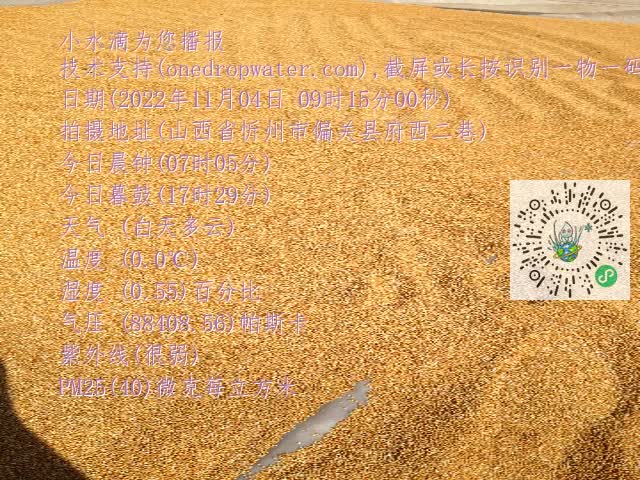 小水滴为您播报
技术支持(onedropwater.com),截屏或长按识别一物一码
日期(2022年11月04日 09时15分00秒)
拍摄地址(山西省忻州市偏关县府西二巷)
今日晨钟(07时05分)
今日暮鼓(17时29分)
天气 (白天多云)
温度 (0.0℃)
湿度 (0.55)百分比
气压 (88408.56)帕斯卡
紫外线(很弱)
PM25(40)微克每立方米